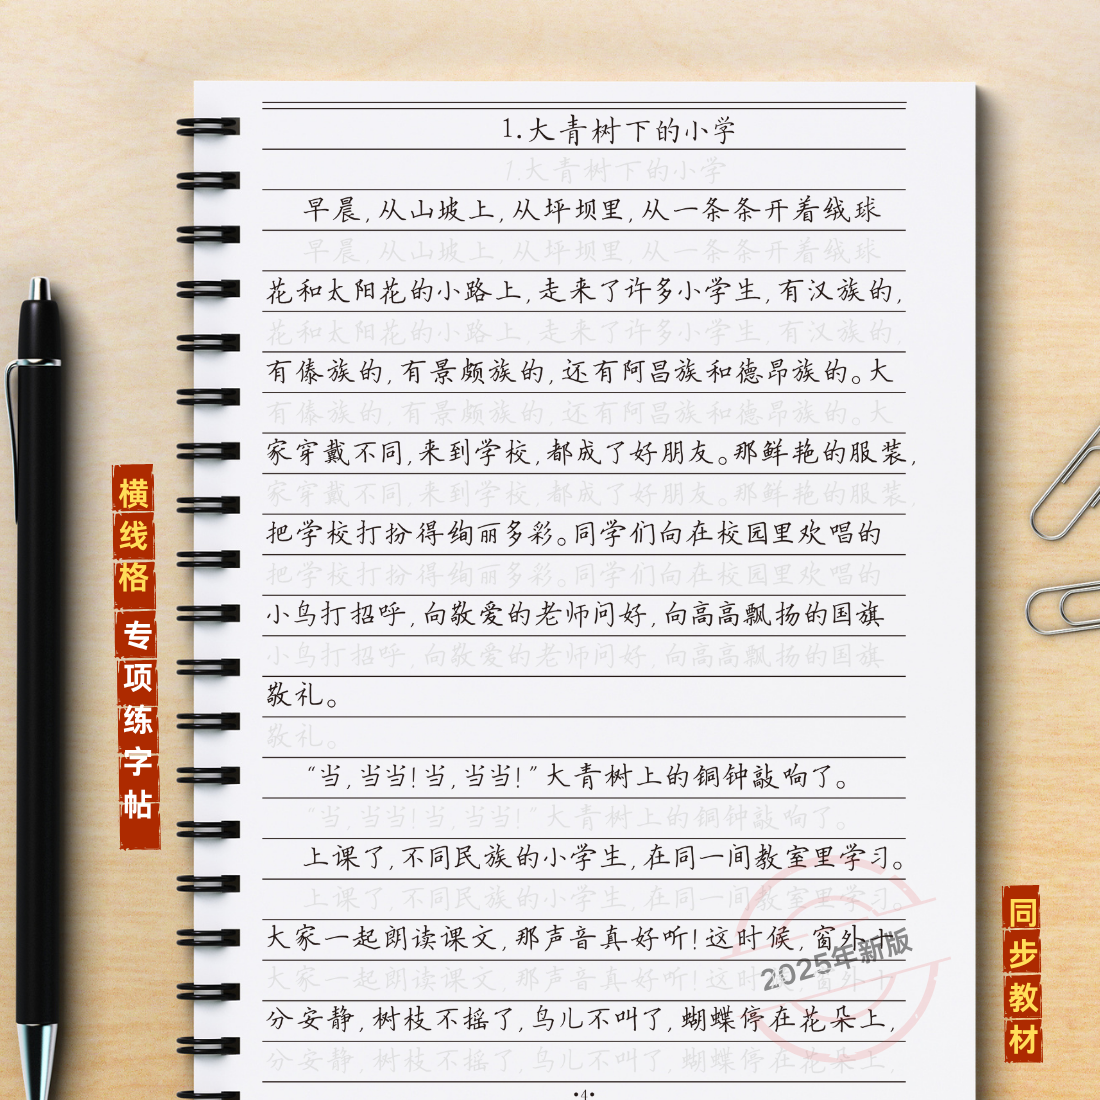 1.大青树下的小学
1.大青树下的小学
早晨,从山坡上,从坪坝里,从一条条开着绒球
早晨,从山坡上,从坪坝里,从一条条开着绒球
花和太阳花的小路上,走来了许多小学生,有汉族的,
花和太阳花的小路上,走来了许多小学生,有汉族的,
有傣族的,有景颇族的,还有阿昌族和德昂族的。大
有傣族的,有景颇族的,还有阿昌族和德昂族的。大
家穿戴不同,来到学校,都成了好朋友。那鲜艳的服装,
家穿戴不同,来到学校,都成了好朋友。那鲜艳的服装,
把学校打扮得绚丽多彩。同学们向在校园里欢唱的
把学校打扮得绚丽多彩。同学们向在校园里欢唱的
小鸟打招呼,向敬爱的老师问好,向高高飘扬的国旗
小鸟打招呼,向敬爱的老师问好,向高高飘扬的国旗
敬礼。
敬礼。
“当,当当!当,当当!”大青树上的铜钟敲响了。
“当,当当!当,当当!”大青树上的铜钟敲响了。
上课了,不同民族的小学生,在同一间教室里学习。
上课了,不同民族的小学生,在同一间教室里学习。
大家一起朗读课文,那声音真好听!这时候,窗外十
大家一起朗读课文,那声音真好听!这时候,窗外十
分安静,树枝不摇了,鸟儿不叫了,蝴蝶停在花朵上,
分安静,树枝不摇了,鸟儿不叫了,蝴蝶停在花朵上,
•4•
横线格专项练字帖
2025年新版
同步教材